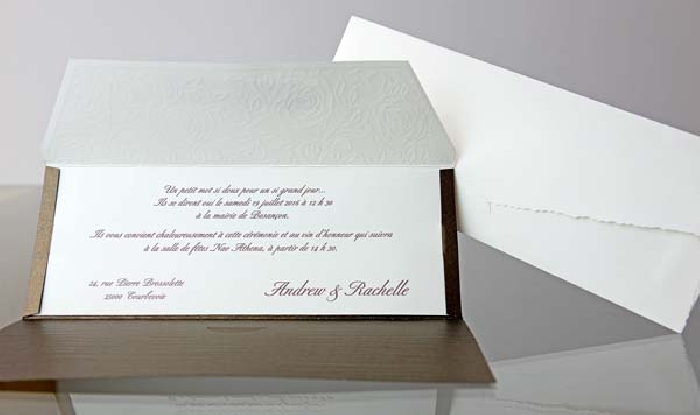 Un petit mot si doux pour un si grand jour...
Ils se diront oui le samedi 19 juillet 2016 à 12 h 30
à la mairie de Besançon.
Ils vous convient chaleureusement à cette cérémonie et au vin d'honneur qui suivra
à la salle de fêtes Nae Athena, à partir de 14 h 30.
24, rue Pierre Brossolette
Courbevoie
Andrew & Rachelle